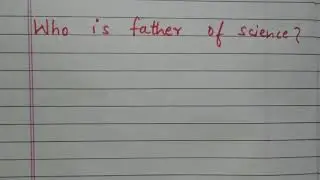 Who is father of science?